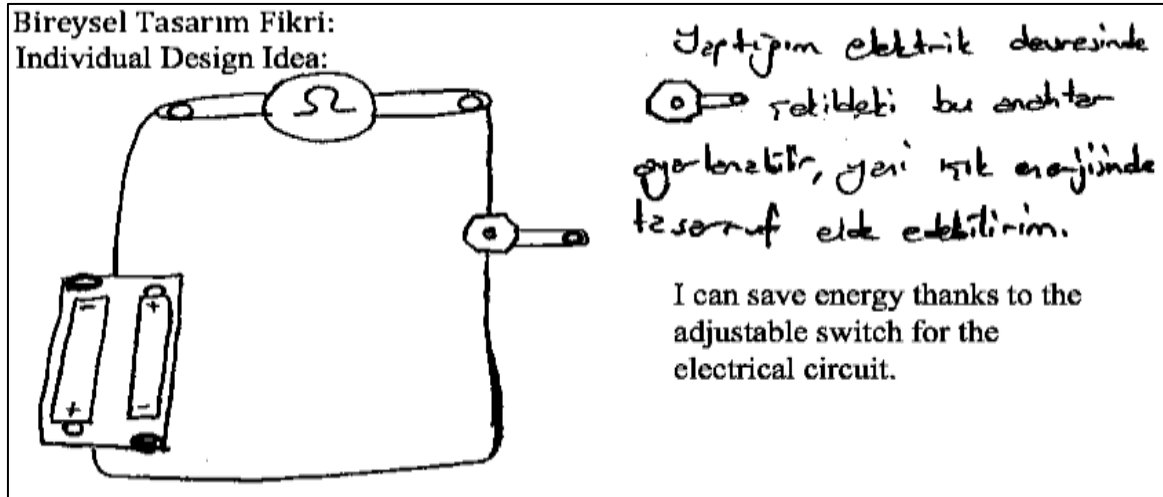 Bireysel Tasarım Fikri:
Individual Design Idea:
Ω
Yaptığım elektrik devresinde
şekildeki bu anahtar
ayarlanabilir, yani ışık enerjisinde
tasarruf elde edebilirim.
I can save energy thanks to the
adjustable switch for the
electrical circuit.
- +
+ -